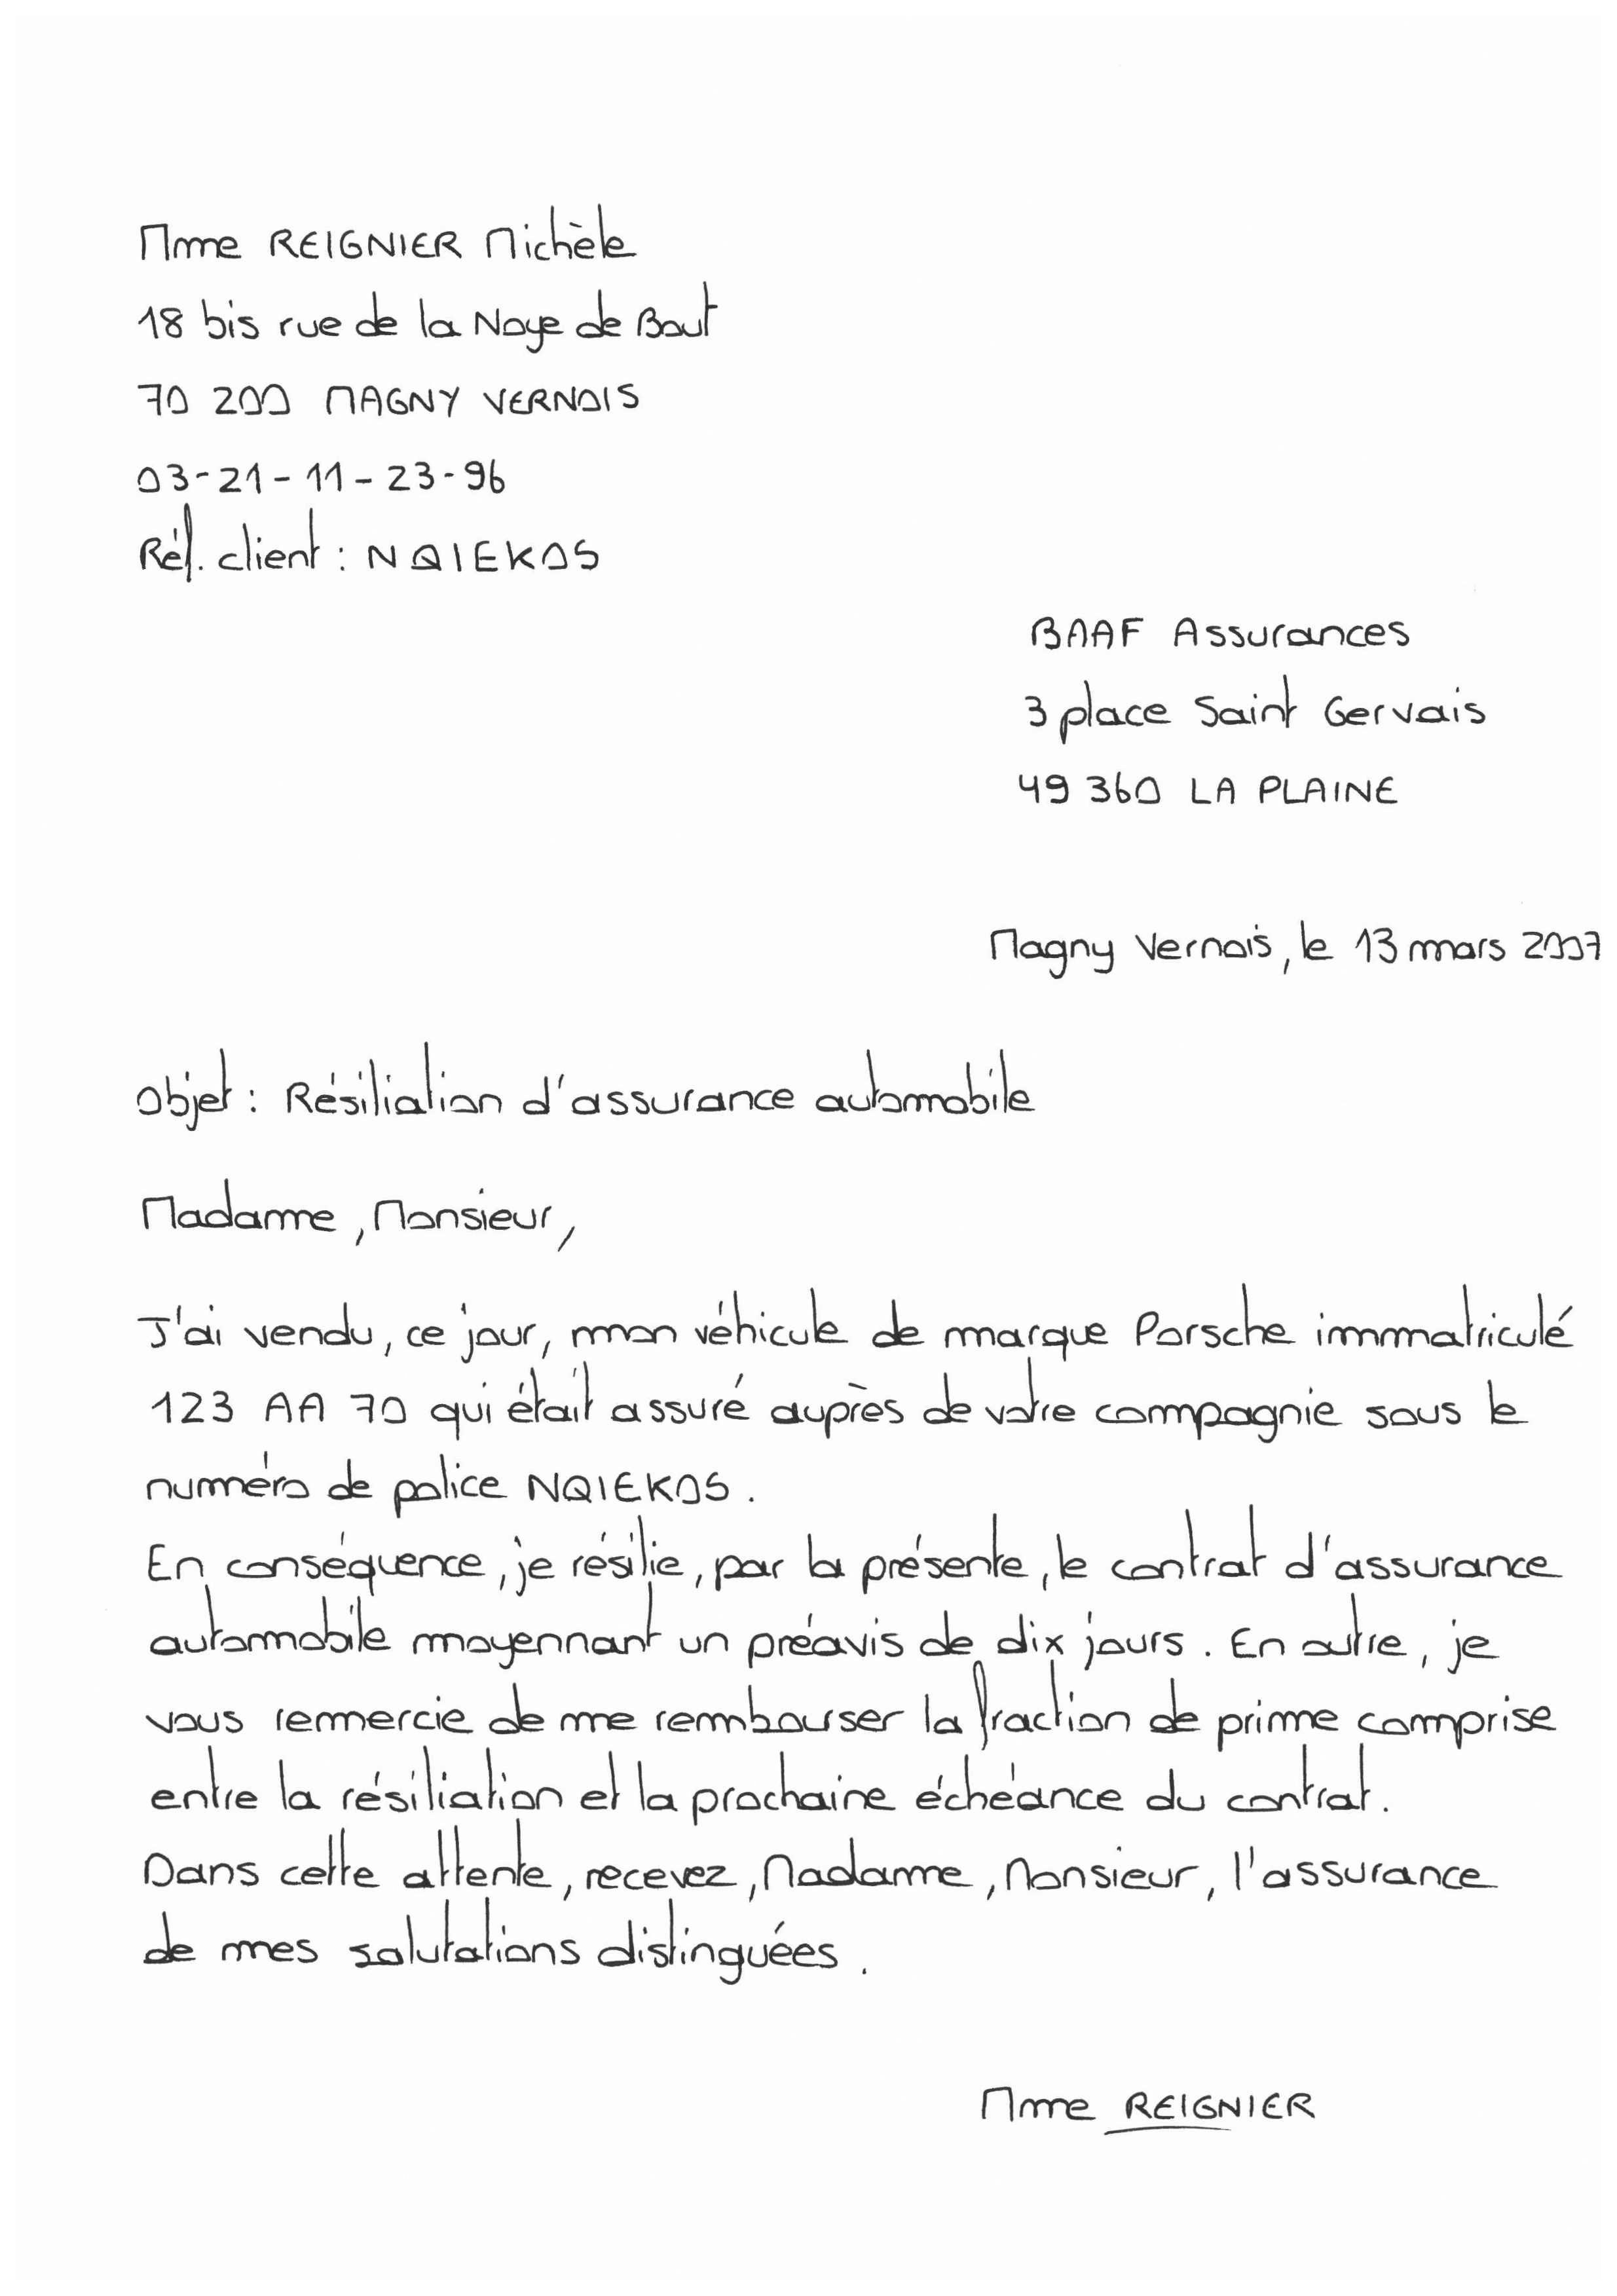 Mme REIGNIER Michèle
18 bis rue de la Noye de Bout
70 200 MAGNY VERNOIS
03-21-11-23-96
Réf. client : NQIEKOS
BAAF Assurances
3 place Saint Gervais
49 360 LA PLAINE
Magny Vernois, le 13 mars 2007
Objet : Résiliation d'assurance automobile
Madame, Monsieur,
J'ai vendu, ce jour, mon véhicule de marque Porsche immatriculé
123 AA 70 qui était assuré auprès de votre compagnie sous le
numéro de police NQIEKOS.
En conséquence, je résilie, par la présente, le contrat d'assurance
automobile moyennant un préavis de dix jours. En outre, je
vous remercie de me rembourser la fraction de prime comprise
entre la résiliation et la prochaine échéance du contrat.
Dans cette attente, recevez, Madame, Monsieur, l'assurance
de mes salutations distinguées.
Mme REIGNIER